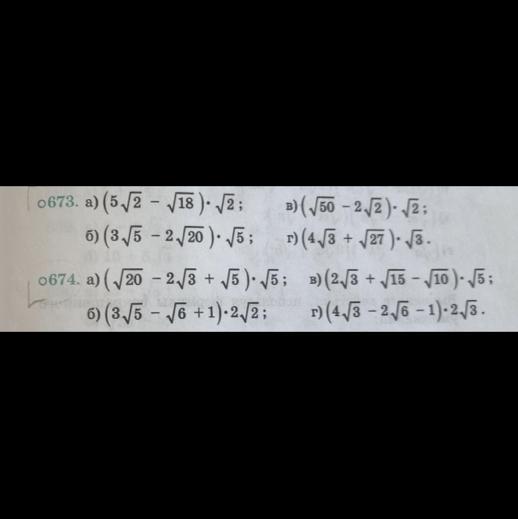 ○673. а) (5√2 − √18)·√2; в) (√50 − 2√2)·√2;
б) (3√5 − 2√20)·√5; г) (4√3 + √27)·√3.
○674. а) (√20 − 2√3 + √5)·√5; в) (2√3 + √15 − √10)·√5;
б) (3√5 − √6 + 1)·2√2; г) (4√3 − 2√6 − 1)·2√3.